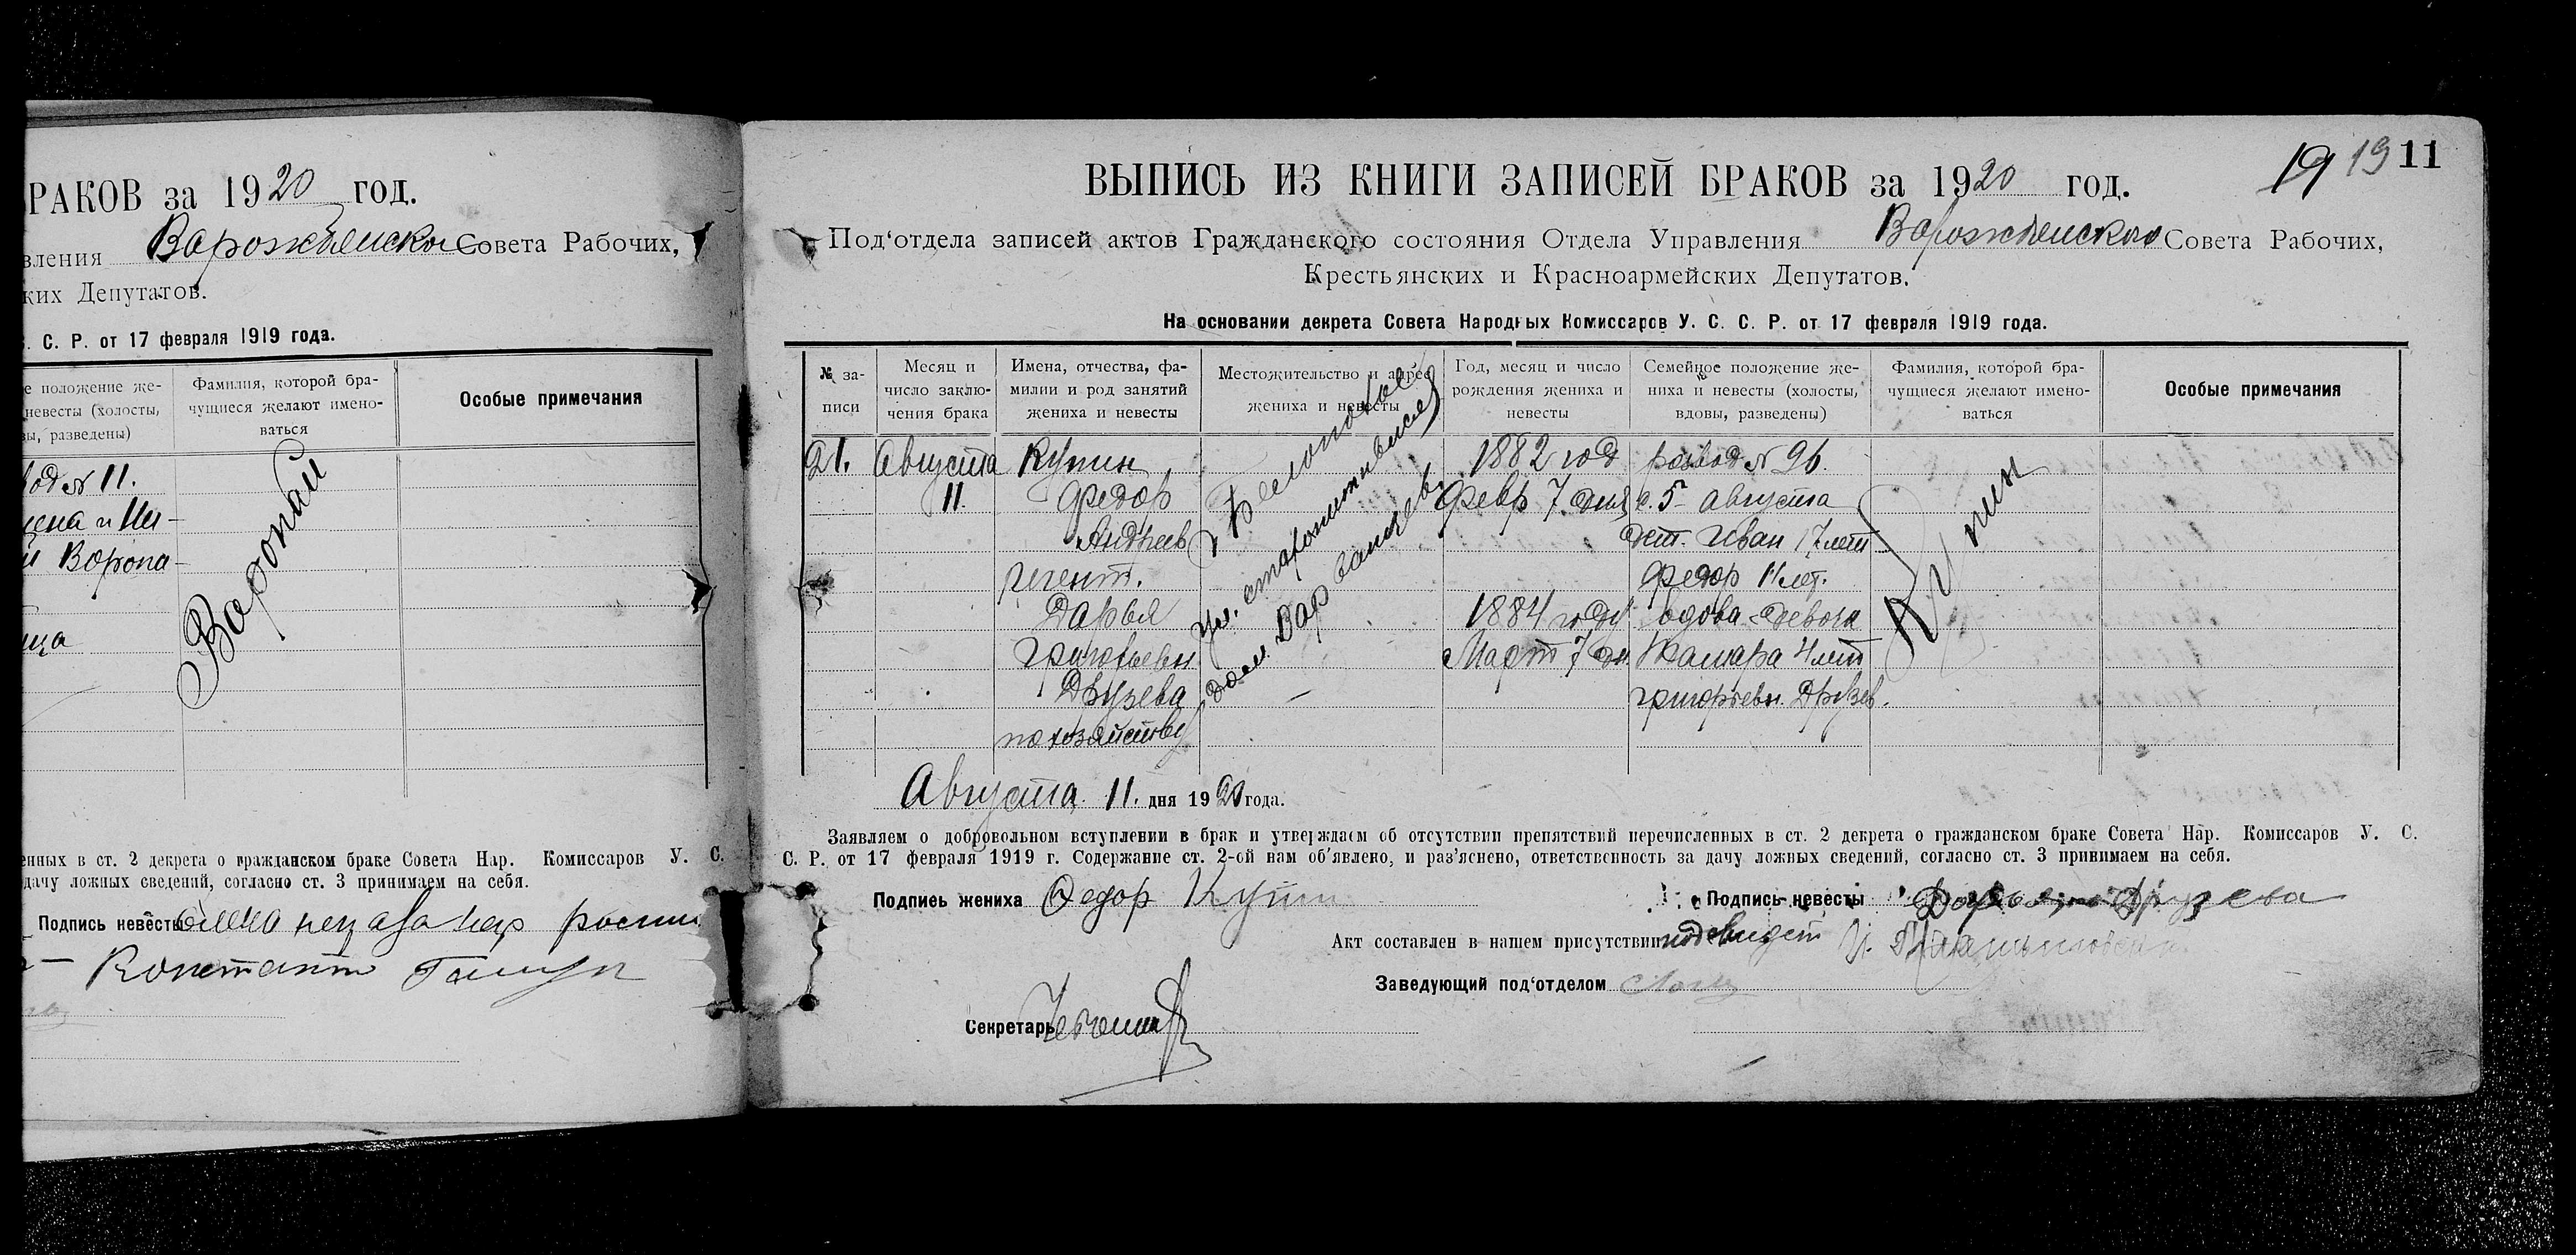 РАКОВ за 1920 год.
вления Ворожбянско Совета Рабочих,
ких Депутатов.
С. С. Р. от 17 февраля 1919 года.
е положение же-
невесты (холосты,
вы, разведены)
Фамилия, которой бра-
чущиеся желают имено-
ваться
Особые примечания
од № 11.
Воропа-
Воропай
енных в ст. 2 декрета о гражданском браке Совета Нар. Комиссаров У. С.
дачу ложных сведений, согласно ст. 3 принимаем на себя.
Подпись невесты
Константин
19 19 11
ВЫПИСЬ ИЗ КНИГИ ЗАПИСЕЙ БРАКОВ за 1920 год.
Под‘отдела записей актов Гражданского состояния Отдела Управления Ворожбянского Совета Рабочих,
Крестьянских и Красноармейских Депутатов.
На основании декрета Совета Народных Комиссаров У. С. С. Р. от 17 февраля 1919 года.
№ за-
писи
Месяц и
число заклю-
чения брака
Имена, отчества, фа-
милии и род занятий
жениха и невесты
Местожительство и адрес
жениха и невесты
Год, месяц и число
рождения жениха и
невесты
Семейное положение же-
ниха и невесты (холосты,
вдовы, разведены)
Фамилия, которой бра-
чущиеся желают имено-
ваться
Особые примечания
21.
Августа
11.
Купин
Федор
Андреев
регент.
Дарья
Григорьевн
Друзева
по хозяйству
г Белополье
ул.
дом.
1882 год
Февр 7. дня
1884 году
Март 7 дн.
развод № 96.
с. 5 - августа
дет. Иван 17 лет
Федор 11 лет.
вдова девочка
Тамара 4 лет
григорьевн. Друзев.
Купин
Августа 11. дня 1920 года.
Заявляем о добровольном вступлении в брак и утверждаем об отсутствии препятствий перечисленных в ст. 2 декрета о гражданском браке Совета Нар. Комиссаров У. С.
С. Р. от 17 февраля 1919 г. Содержание ст. 2-ой нам об‘явлено, и раз‘яснено, ответственность за дачу ложных сведений, согласно ст. 3 принимаем на себя.
Подпись жениха Федор Купин
Подпись невесты Дарья Друзева
Акт составлен в нашем присутствии
Заведующий под‘отделом
Секретарь